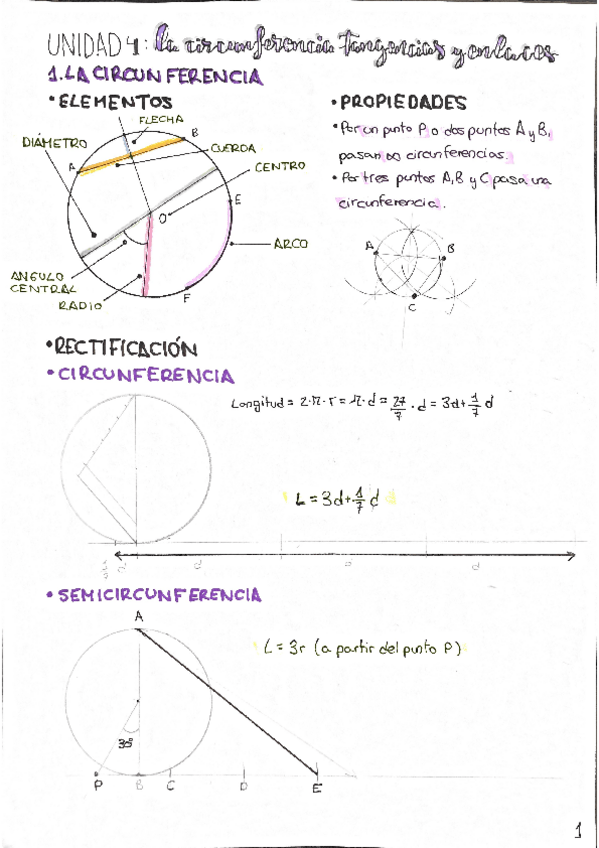 UNIDAD 4: La circunferencia tangencias y enlaces
1. LA CIRCUNFERENCIA
• ELEMENTOS
FLECHA
B
DIÁMETRO
CUERDA
A
CENTRO
E
O
ARCO
ANGULO
CENTRAL
RADIO
F
• PROPIEDADES
• Por un punto P o dos puntos A y B,
pasan ∞ circunferencias.
• Por tres puntos A, B y C pasa una
circunferencia.
A
B
C
• RECTIFICACIÓN
• CIRCUNFERENCIA
Longitud = 2·π·r = π·d = 22/7 · d = 3d + 1/7 d
L = 3d + 1/7 d
d
d
d
• SEMICIRCUNFERENCIA
A
L = 3r (a partir del punto P)
30°
P B C D E
1